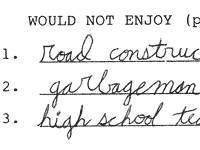 WOULD NOT ENJOY (p
1. road construc
2. garbageman
3. high school tea